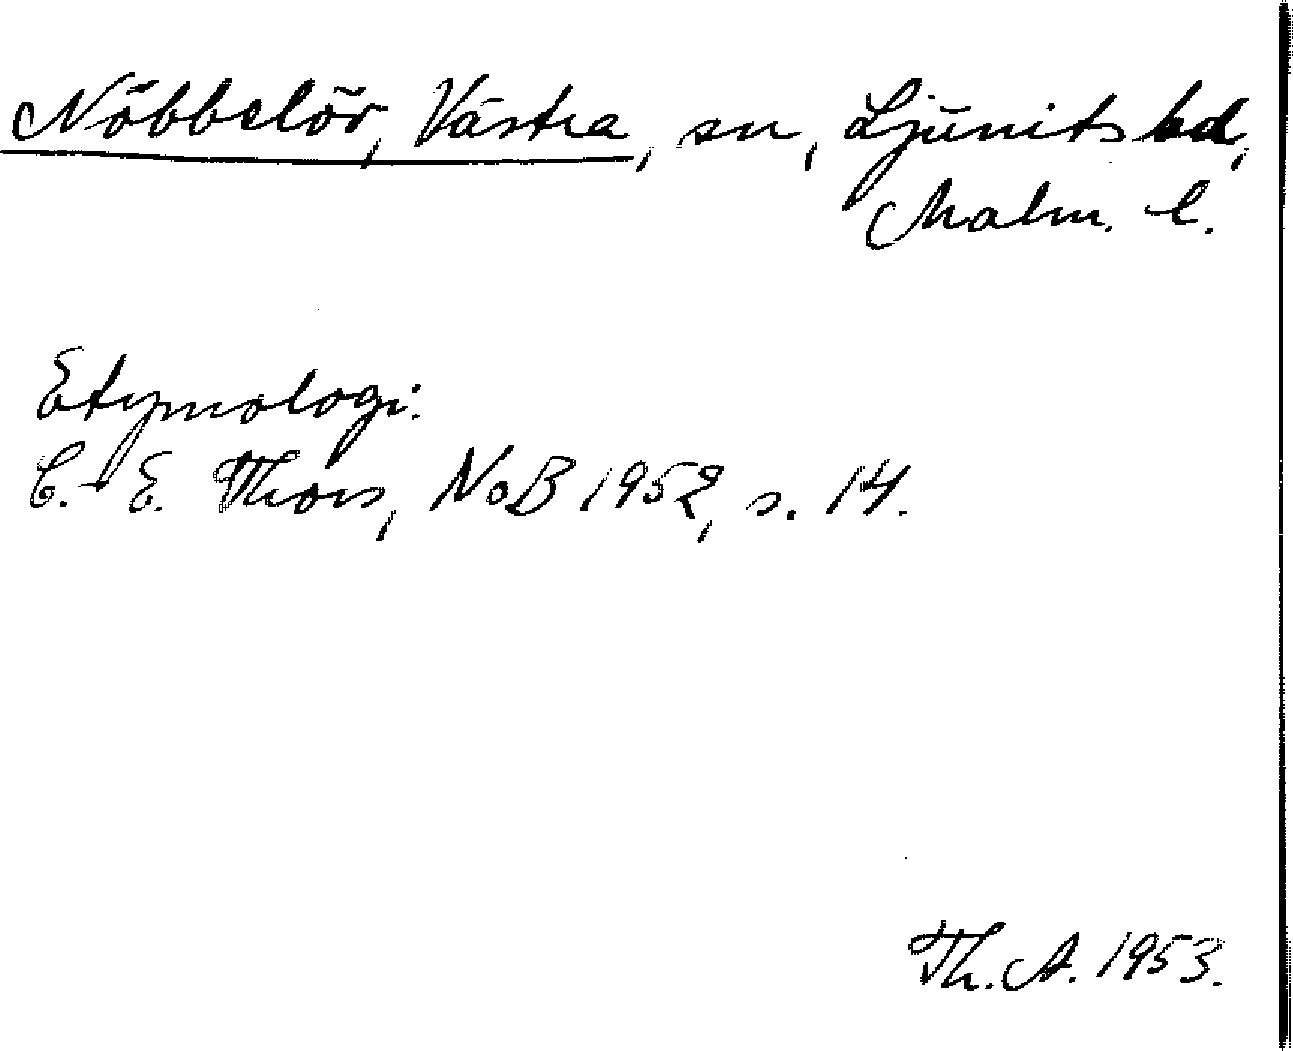 Nöbbelöv, Västra, sn, Ljunits hd,
Malm. l.
Etymologi.
C.-E. Thors, NoB 1952, s. 14.
Th. A. 1953.